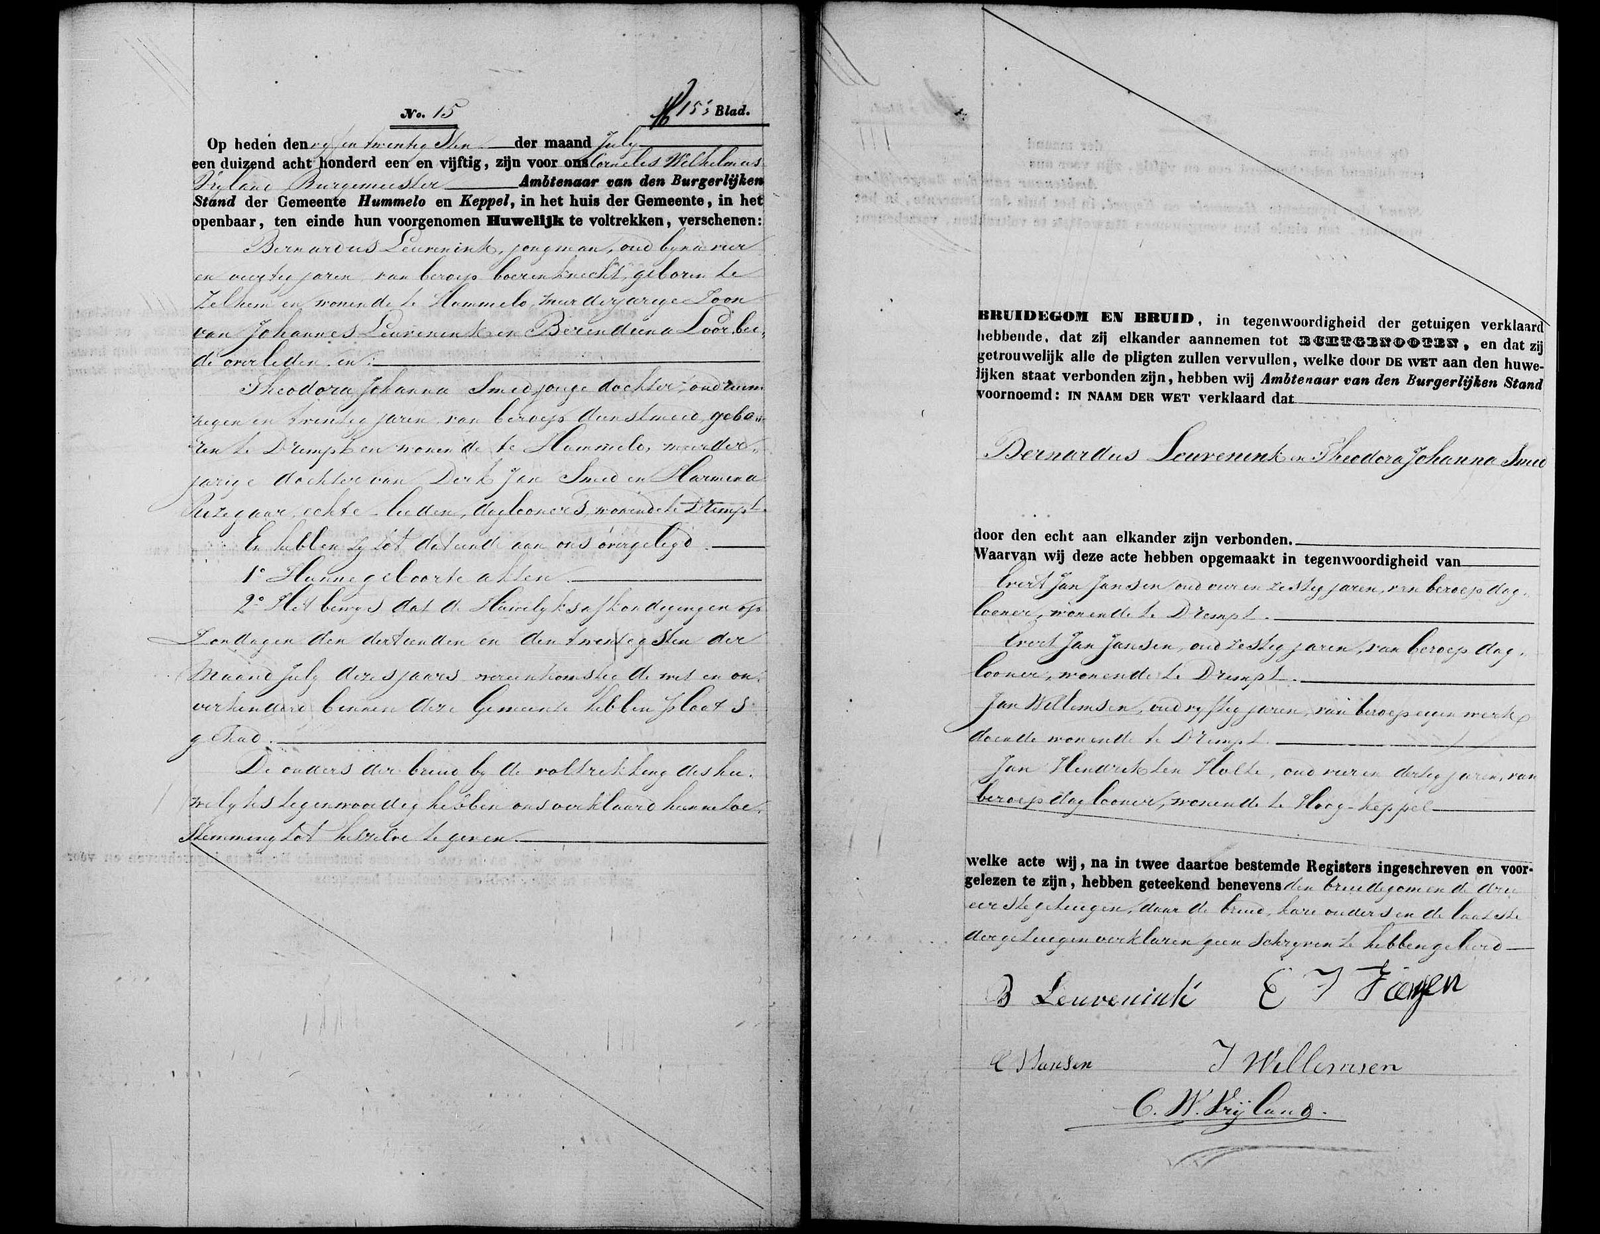 No. 15
15e Blad.
Op heden den vyf en twentigsten der maand July
een duizend acht honderd een en vijftig, zijn voor ons Cornelis Wilhelmus
Vryland Burgemeester Ambtenaar van den Burgerlijken
Stand der Gemeente Hummelo en Keppel, in het huis der Gemeente, in het
openbaar, ten einde hun voorgenomen Huwelijk te voltrekken, verschenen:
Bernardus Leuvenink, jongman, oud byna vier
en veertig jaren, van beroep boerenknecht, geboren te
Zelhem en wonende te Hummelo, meerderjarige Zoon
van Johannes Leuvenink en Berendiena Loor bei,
de overleden, en:
Theodora Johanna Smed jonge dochter, oud ruim
negen en twentig jaren van beroep dienstmeid, gebo,,
ren te Drempt en wonende te Hummelo, meerder,,
jarige dochter van Derk Jan Smed en Harmina
echte lieden, daglooners, wonende te Drempt.
En hebben zy tot dat einde aan ons overgelegd.
1o Hunne geboorte akten.
2o Het bewys dat de Huwelyks afkondigingen op
Zondagen den dertienden en den twentigsten der
Maand July dezes jaars overeenkomstig de wet en on,
verhinderd binnen deze Gemeente hebben plaats
gehad.
De ouders der bruid by de voltrekking des hu,
welyks tegenwoordig hebben ons verklaard hunne toe,
stemming tot hetzelve te geven.
BRUIDEGOM EN BRUID, in tegenwoordigheid der getuigen verklaard
hebbende, dat zij elkander aannemen tot ECHTGENOOTEN, en dat zij
getrouwelijk alle de pligten zullen vervullen, welke door DE WET aan den huwe-
lijken staat verbonden zijn, hebben wij Ambtenaar van den Burgerlijken Stand
voornoemd: IN NAAM DER WET verklaard dat
Bernardus Leuvenink en Theodora Johanna Smed
door den echt aan elkander zijn verbonden.
Waarvan wij deze acte hebben opgemaakt in tegenwoordigheid van
Evert Jan Jansen oud vier en zestig jaren, van beroep dag,
looner, wonende te Drempt.
Evert Jan Jansen, oud zestig jaren, van beroep dag,
looner, wonende te Drempt.
Jan Willemsen, oud vyftig jaren, van beroep eigen werk
doende wonende te Drempt.
Jan Hendrik ten Holte, oud vier en dertig jaren, van
beroep daglooner, wonende te Hoog-Keppel
welke acte wij, na in twee daartoe bestemde Registers ingeschreven en voor-
gelezen te zijn, hebben geteekend benevens den bruidegom en de drie
eerste getuigen, daar de bruid, hare ouders en de laatste
der getuigen verklaren geen schryven te hebben geleerd
B Leuvenink E J Jansen
E J Jansen J Willemsen
C. W. Vrijland.